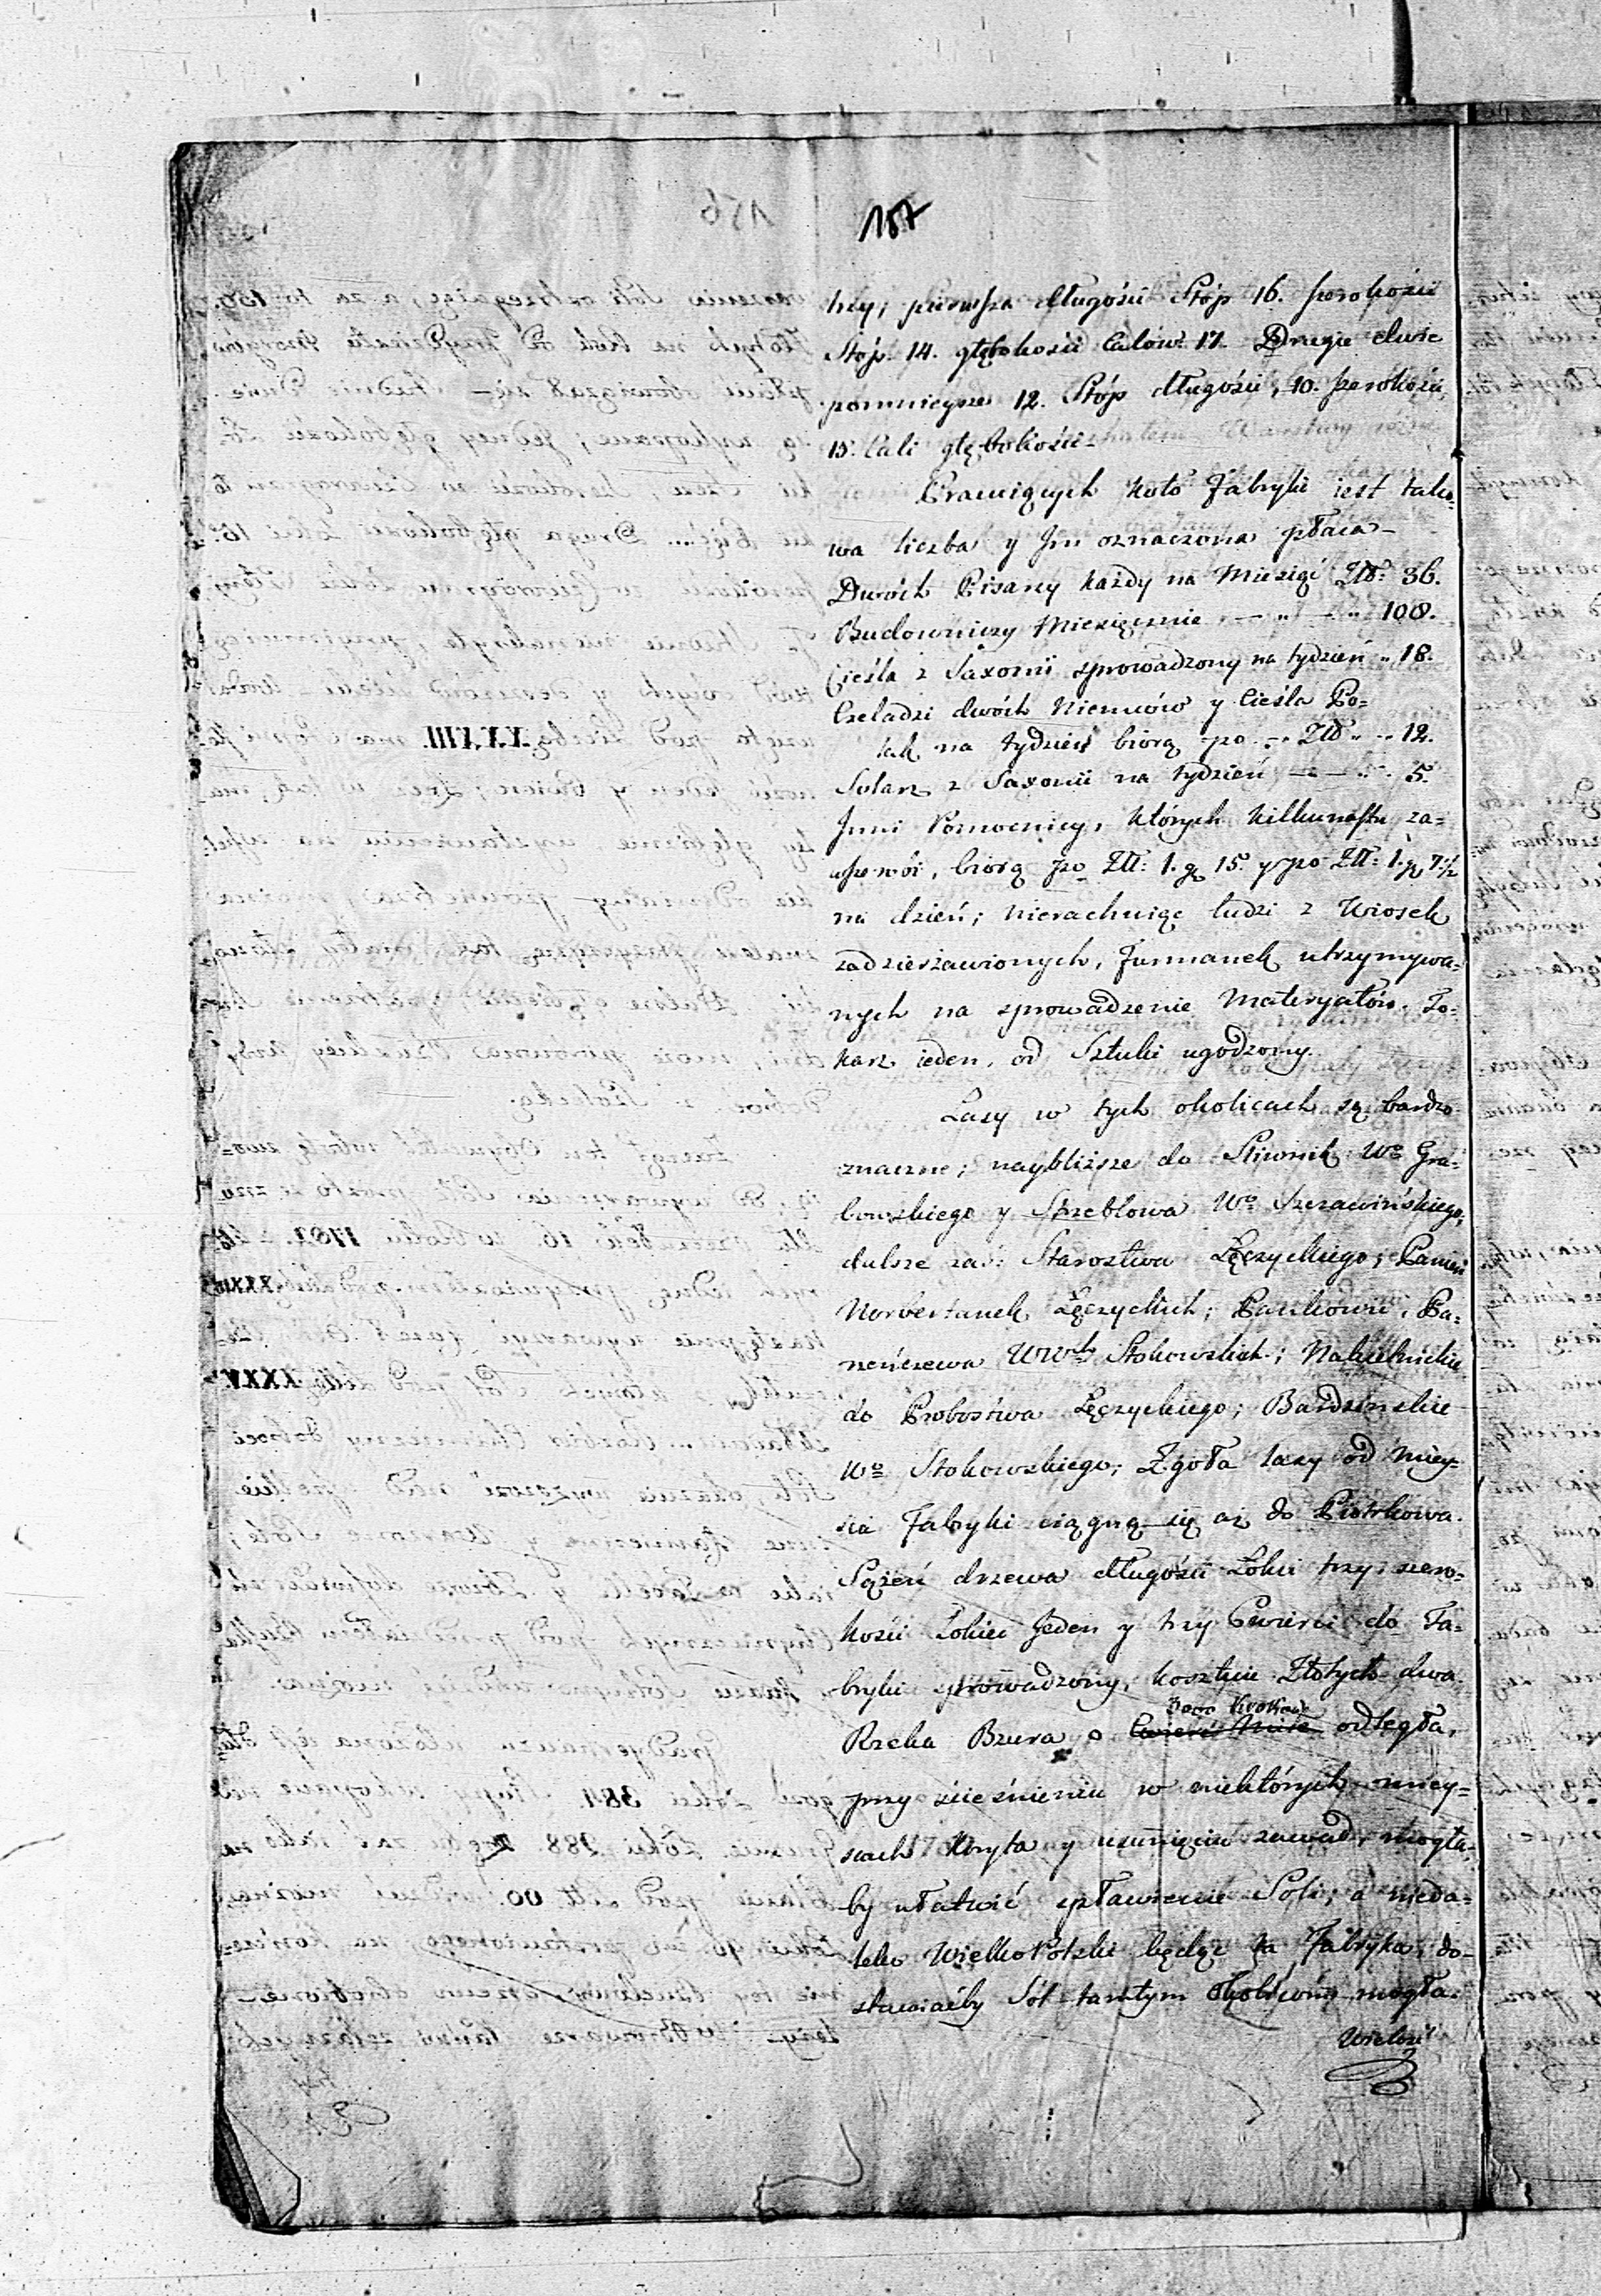 157
trzy; pierwsza długości Stóp 16. szerokości
Stóp. 14. głębokości Calów 17. Drugie dwie
pomnieysze 12. Stóp długości, 10. szerokości,
15. Cali głębokości.
Pracuiących koło Fabryki iest tako=
wa liczba y Im oznaczona płaca.
Dwóch Pisarzy każdy na Miesiąc Złł: 36.
Budowniczy Miesięcznie — " — " 108.
Cieśla z Saxonii sprowadzony na tydzień " 18.
Czeladzi dwóch Niemców y Cieśla Po=
lak na tydzień biorą po — Złł " " 12.
Solarz z Saxonii na tydzień — — " " 5.
Inni Pomocnicy, których kilkunastu za=
wsze robi, biorą po Złł: 1. g 15. y po Złł: 1. g 7½
na dzień; nierachuiąc ludzi z Wiosek
zadzierżawionych, Furmanek utrzymywa=
nych na sprowadzenie Materyałów. To=
karz ieden, od Sztuki ugodzony.
Lasy w tych okolicach są bardzo
znaczne; naybliższe do Sliwnik Wo Gra=
bowskiego y Strzeblowa Wo Szczawińskiego,
dalsze zaś: Starostwa Łęczyckiego; Panien
Norbertanek Łęczyckich; Parzkowic, Pa=
neńczewa WWch Stokowskich; Nakielnickie
do Probostwa Łęczyckiego; Bardzinskie
Wo Stokowskiego; Zgoła lasy od Miey=
sca Fabryki ciągną się aż do Piotrkowa.
Sążeń drzewa długości Łokci trzy, szero=
kości Łokieć Jeden y trzy Cwierci do Fa=
bryki sprowadzony, kosztuie Złotych dwa.
3000 Kroków
Rzeka Bzura o Cwierć Mile odległa,
przy ściesnieniu w niektórych miey=
scach Koryta y usunięciu zawad, mogła=
by ułatwić spławienie Soli; a nieda=
leko Wielko Polski będąc ta Fabryka, do=
stawiaćby Sól tamtym Okolicom mogła.
Wielość